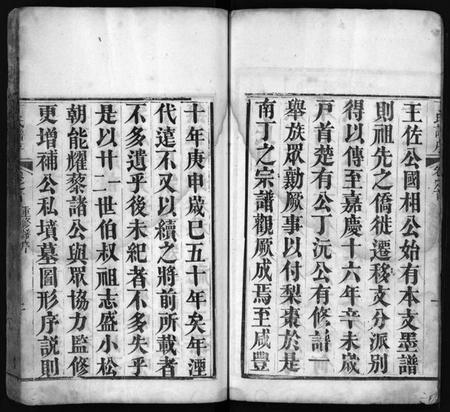 王佐公國相公始有本支墨譜
則祖先之僑徙遷移支分派別
得以傳至嘉慶十六年辛未歲
戸首楚有公丁沅公有修譜一
舉族眾勷厥事以付梨棗於是
南丁之宗譜觀厥成焉至咸豐
十年庚申歲已五十年矣年湮
代遠不又以續之將前所載者
不多遺乎後未紀者不多失乎
是以廿二世伯叔祖志盛小松
朝能耀黎諸公與眾協力監修
更增補公私墳墓圖形序說則